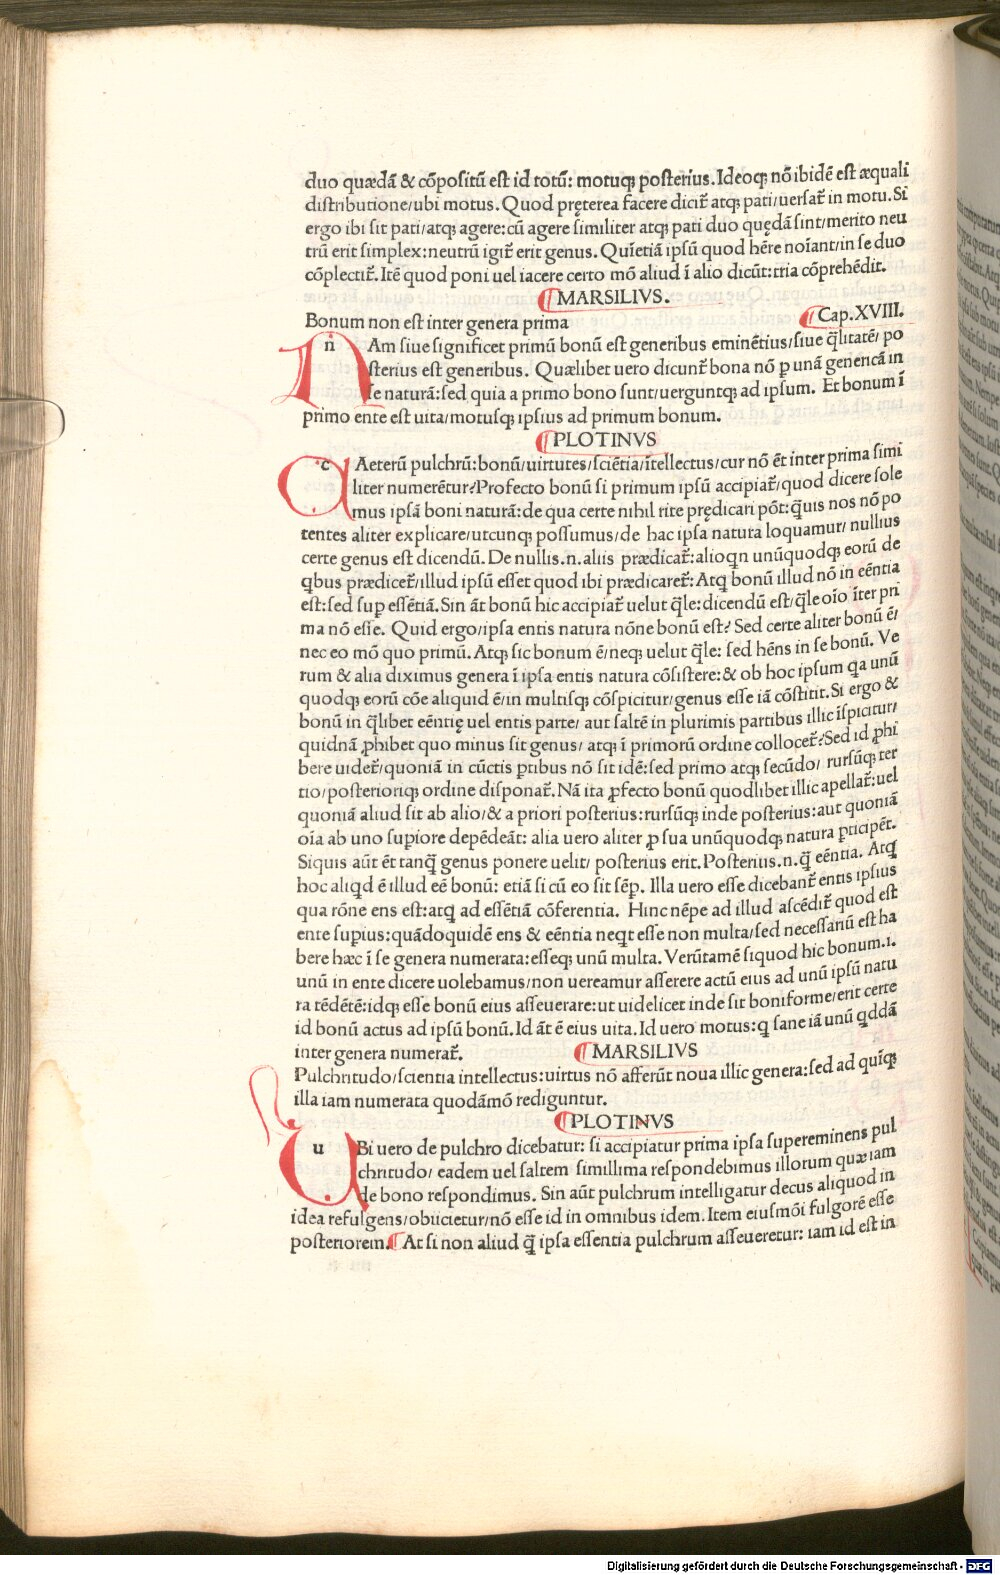 duo quædã & cõpositũ est id totũ: motuq; posterius. Ideoq; nõ ibidẽ est æquali
distributione/ubi motus. Quod pręterea facere dicit᷑ atq; pati/uersat᷑ in motu. Si
ergo ibi sit pati/atq; agere: cũ agere similiter atq; pati duo quędã sint/merito neu
trũ erit simplex: neutrũ igit᷑ erit genus. Quĩetiã ipsũ quod hẽre noĩant/in se duo
cõplectit᷑. Itẽ quod poni uel iacere certo mõ aliud ĩ alio dicũt: tria cõprehẽdit.
¶ MARSILIVS.
Bonum non est inter genera prima ¶ Cap. XVIII.
n Am siue significet primũ bonũ est generibus eminẽtius/siue q̃litatẽ/ po
sterius est generibus. Quælibet uero dicunt᷑ bona nõ ꝑ unã genericã in
se naturã: sed quia a primo bono sunt/uerguntq; ad ipsum. Et bonum ĩ
primo ente est uita/motusq; ipsius ad primum bonum.
¶ PLOTINVS
c Aeterũ pulchrũ: bonũ/uirtutes/sciẽtia/ĩtellectus/cur nõ ẽt inter prima simi
liter numerẽtur? Profecto bonũ si primum ipsũ accipiat᷑/quod dicere sole
mus ipsã boni naturã: de qua certe nihil rite prędicari põt: q̃uis nos nõ po
tentes aliter explicare/utcunq; possumus/de hac ipsa natura loquamur/ nullius
certe genus est dicendũ. De nullis .n. aliis prædicat᷑: alioqn unũquodq; eorũ de
qbus prædicet᷑ illud ipsũ esset quod ibi prædicaret᷑: Atq bonũ illud nõ in eẽntia
est: sed suꝑ essẽtiã. Sin ãt bonũ hic accipiat᷑ uelut q̃le: dicendũ est/q̃le oĩo ĩter pri
ma nõ esse. Quid ergo/ipsa entis natura nõne bonũ est? Sed certe aliter bonũ ẽ/
nec eo mõ quo primũ. Atq; sic bonum ẽ/neq; uelut q̃le: sed hẽns in se bonũ. Ve
rum & alia diximus genera ĩ ipsa entis natura cõsistere: & ob hoc ipsum qa unũ
quodq; eorũ cõe aliquid ẽ/in multisq; cõspicitur/genus esse iã cõstitit. Si ergo &
bonũ in q̃libet eẽntię uel entis parte/ aut saltẽ in plurimis partibus illic ĩspicitur/
quidnã ꝓhibet quo minus sit genus/ atq; ĩ primorũ ordine collocet᷑? Sed id ꝓhi
bere uidet᷑/quoniã in cũctis ꝑtibus nõ sit idẽ: sed primo atq; secũdo/ rursũq; ter
tio/posteriorisq; ordine disponat᷑. Nã ita ꝓfecto bonũ quodlibet illic apellat᷑: uel
quoniã aliud sit ab alio/& a priori posterius: rursũq; inde posterius: aut quoniã
oĩa ab uno supiore depẽdeãt: alia uero aliter ꝓ sua unũquodq; natura ꝑticipẽt.
Siquis aũt ẽt tanq̃ genus ponere uelit/ posterius erit. Posterius .n. q̃ eẽntia. Atq
hoc aliqd ẽ illud eẽ bonũ: etiã si cũ eo sit sẽꝑ. Illa uero esse dicebant᷑ entis ipsius
qua rõne ens est: atq ad essẽtiã cõferentia. Hinc nẽpe ad illud ascẽdit᷑ quod est
ente supius: quãdoquidẽ ens & eẽntia neqt esse non multa/sed necessariũ est ha
bere hæc ĩ se genera numerata: esseq; unũ multa. Verũtamẽ siquod hic bonum .i.
unũ in ente dicere uolebamus/non uereamur asserere actũ eius ad unũ ipsũ natu
ra tẽdẽtẽ: idq; esse bonũ eius asseuerare: ut uidelicet inde sit boniforme/erit certe
id bonũ actus ad ipsũ bonũ. Id ãt ẽ eius uita. Id uero motus: q sane iã unũ qddã
inter genera numerat᷑. ¶ MARSILIVS
Pulchritudo/scientia intellectus: uirtus nõ afferũt noua illic genera: sed ad quĩq;
illa iam numerata quodãmõ rediguntur.
¶ PLOTINVS
u Bi uero de pulchro dicebatur: si accipiatur prima ipsa supereminens pul
chritudo/ eadem uel saltem simillima respondebimus illorum quæ iam
de bono respondimus. Sin aũt pulchrum intelligatur decus aliquod in
idea refulgens/obiicietur/nõ esse id in omnibus idem. Item eiusmõi fulgorẽ esse
posteriorem. ¶ At si non aliud q̃ ipsa essentia pulchrum asseueretur: iam id est in
Digitalisierung gefördert durch die Deutsche Forschungsgemeinschaft - DFG